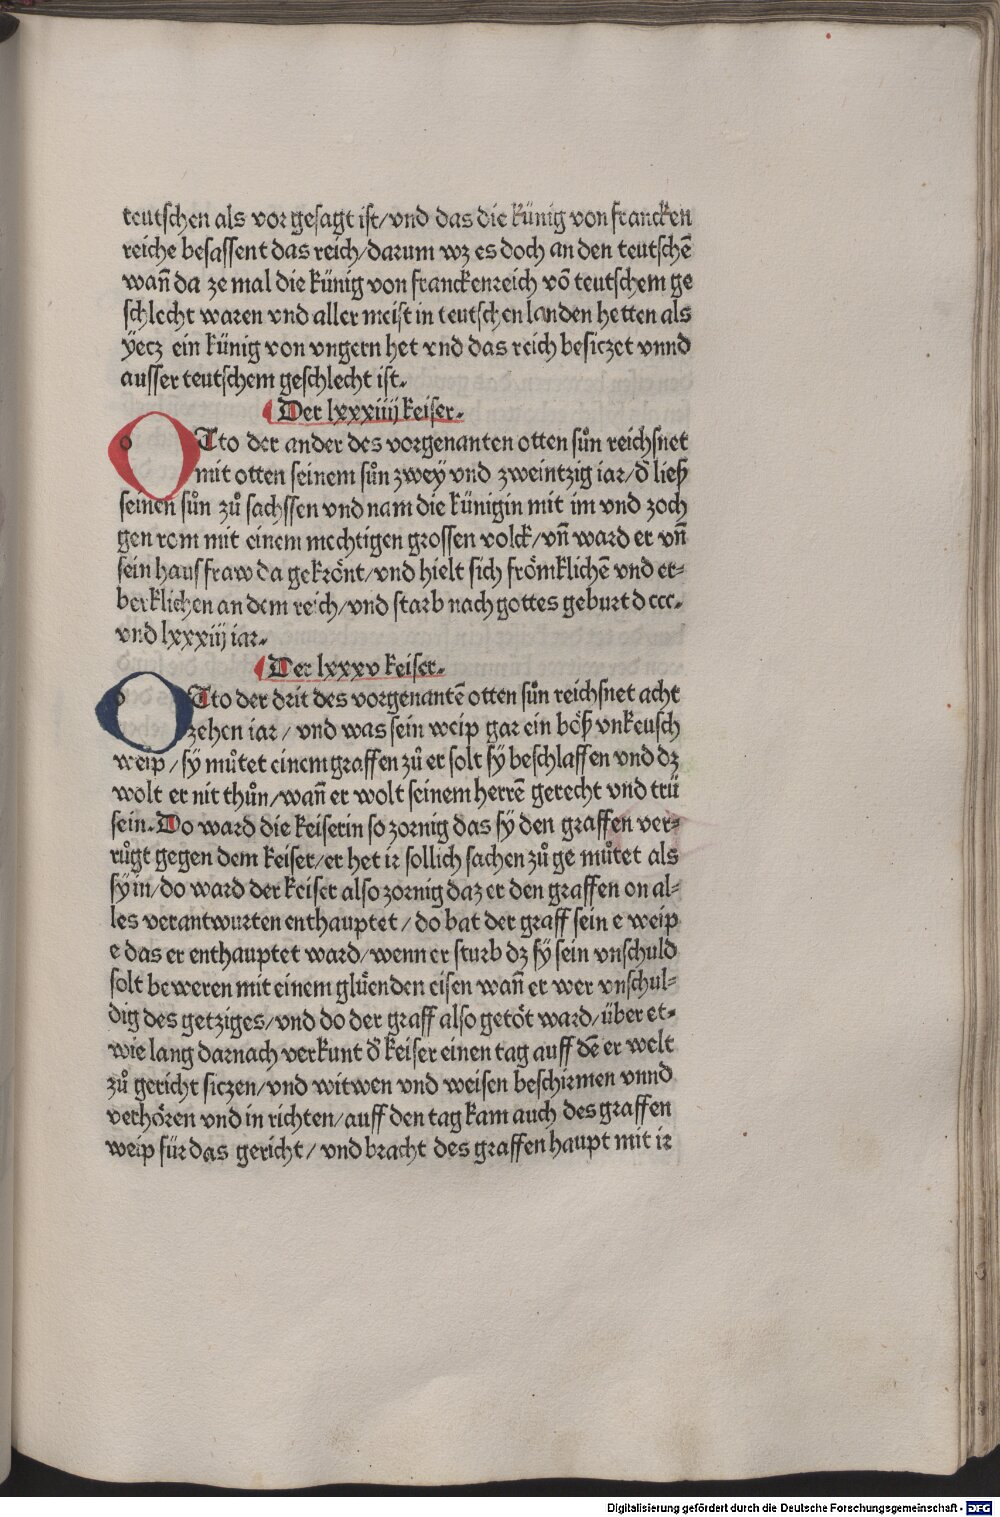 teutschen als vor gesagt ist/vnd das die künig von francken
reiche besassent das reich/darum wz es doch an den teutschē
wañ da ze mal die künig von franckenreich vō teutschem ge
schlecht waren vnd aller meist in teutschen landen hetten als
ÿecz ein künig von vngern het vnd das reich besiczet vnnd
ausser teutschem geschlecht ist.
Der lxxxiiij keiser.
OTto der ander des vorgenanten otten sůn reichsnet
mit otten seinem sůn zweÿ vnd zweintzig iar/đ ließ
seinen sůn zů sachssen vnd nam die künigin mit im vnd zoch
gen rom mit einem mechtigen grossen volck/vñ ward er vñ
sein hausfraw da gekrönt/vnd hielt sich frömklichē vnd er⸗
berklichen an dem reich/vnd starb nach gottes geburt d ccc.
vnd lxxxiij iar.
Der lxxxv keiser.
OTto der drit des vorgenantē otten sůn reichsnet acht
zehen iar/ vnd was sein weip gar ein böß vnkeusch
weip/sÿ můtet einem graffen zů er solt sÿ beschlaffen vnd dz
wolt er nit thůn/wañ er wolt seinem herrē gerecht vnd trü
sein. Do ward die keiserin so zornig das sÿ den graffen ver⸗
růgt gegen dem keiser/er het ir sollich sachen zů ge můtet als
sÿ in/do ward der keiser also zornig daz er den graffen on al⸗
les verantwurten enthauptet/do bat der graff sein e weip
e das er enthauptet ward/wenn er sturb dz sÿ sein vnschuld
solt beweren mit einem glüenden eisen wañ er wer vnschul⸗
dig des getziges/vnd do der graff also getöt ward/über et⸗
wie lang darnach verkunt đ keiser einen tag auff dē er welt
zů gericht siczen/vnd witwen vnd weisen beschirmen vnnd
verhören vnd in richten/auff den tag kam auch des graffen
weip für das gericht/ vnd bracht des graffen haupt mit ir
Digitalisierung gefördert durch die Deutsche Forschungsgemeinschaft - DFG